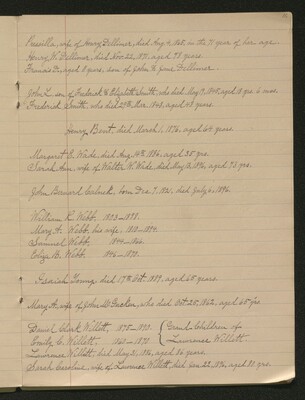 Priscilla, wife of Henry Dellimer, died Aug. 4, 1865, in the 71 year of her age
Henry W. Dellimer, died Nov. 22, 1871, aged 78 years.
Francis D., aged 8 years, son of John & Jane Dellimer
John L. son of Frederick & Elizabeth Smith, who died May 19, 1845, aged 3 yrs. 6 mos.
Frederick Smith, who died 27th Mar. 1863, aged 48 years.
Henry Bent, died March 1, 1876, aged 64 years.
Margaret J. Wade, died Aug. 14th 1886, aged 35 yrs.
Sarah Ann, wife of Walter W. Wade, died May 16, 1896, aged 73 yrs.
John Bernard, born Dec. 7, 1821, died July 6, 1896.
William K. Webb, 1803–1878.
Mary A. Webb, his wife, 1810–1894.
Samuel Webb, 1844–1866.
Eliza B. Webb, 1846–1870.
Isaiah Young, died 17th Oct. 1889, aged 65 years.
Mary A. wife of John McCracken, who died Oct. 25, 1862, aged 65 yrs
Daniel Clark Willett, 1875–1880. { Grand Children of
Emily C. Willett, 1865–1870. Lawrence Willett.
Lawrence Willett, died May 31, 1896, aged 86 years.
Sarah Caroline, wife of Lawrence Willett, died Jan. 22, 1896, aged 81 yrs.